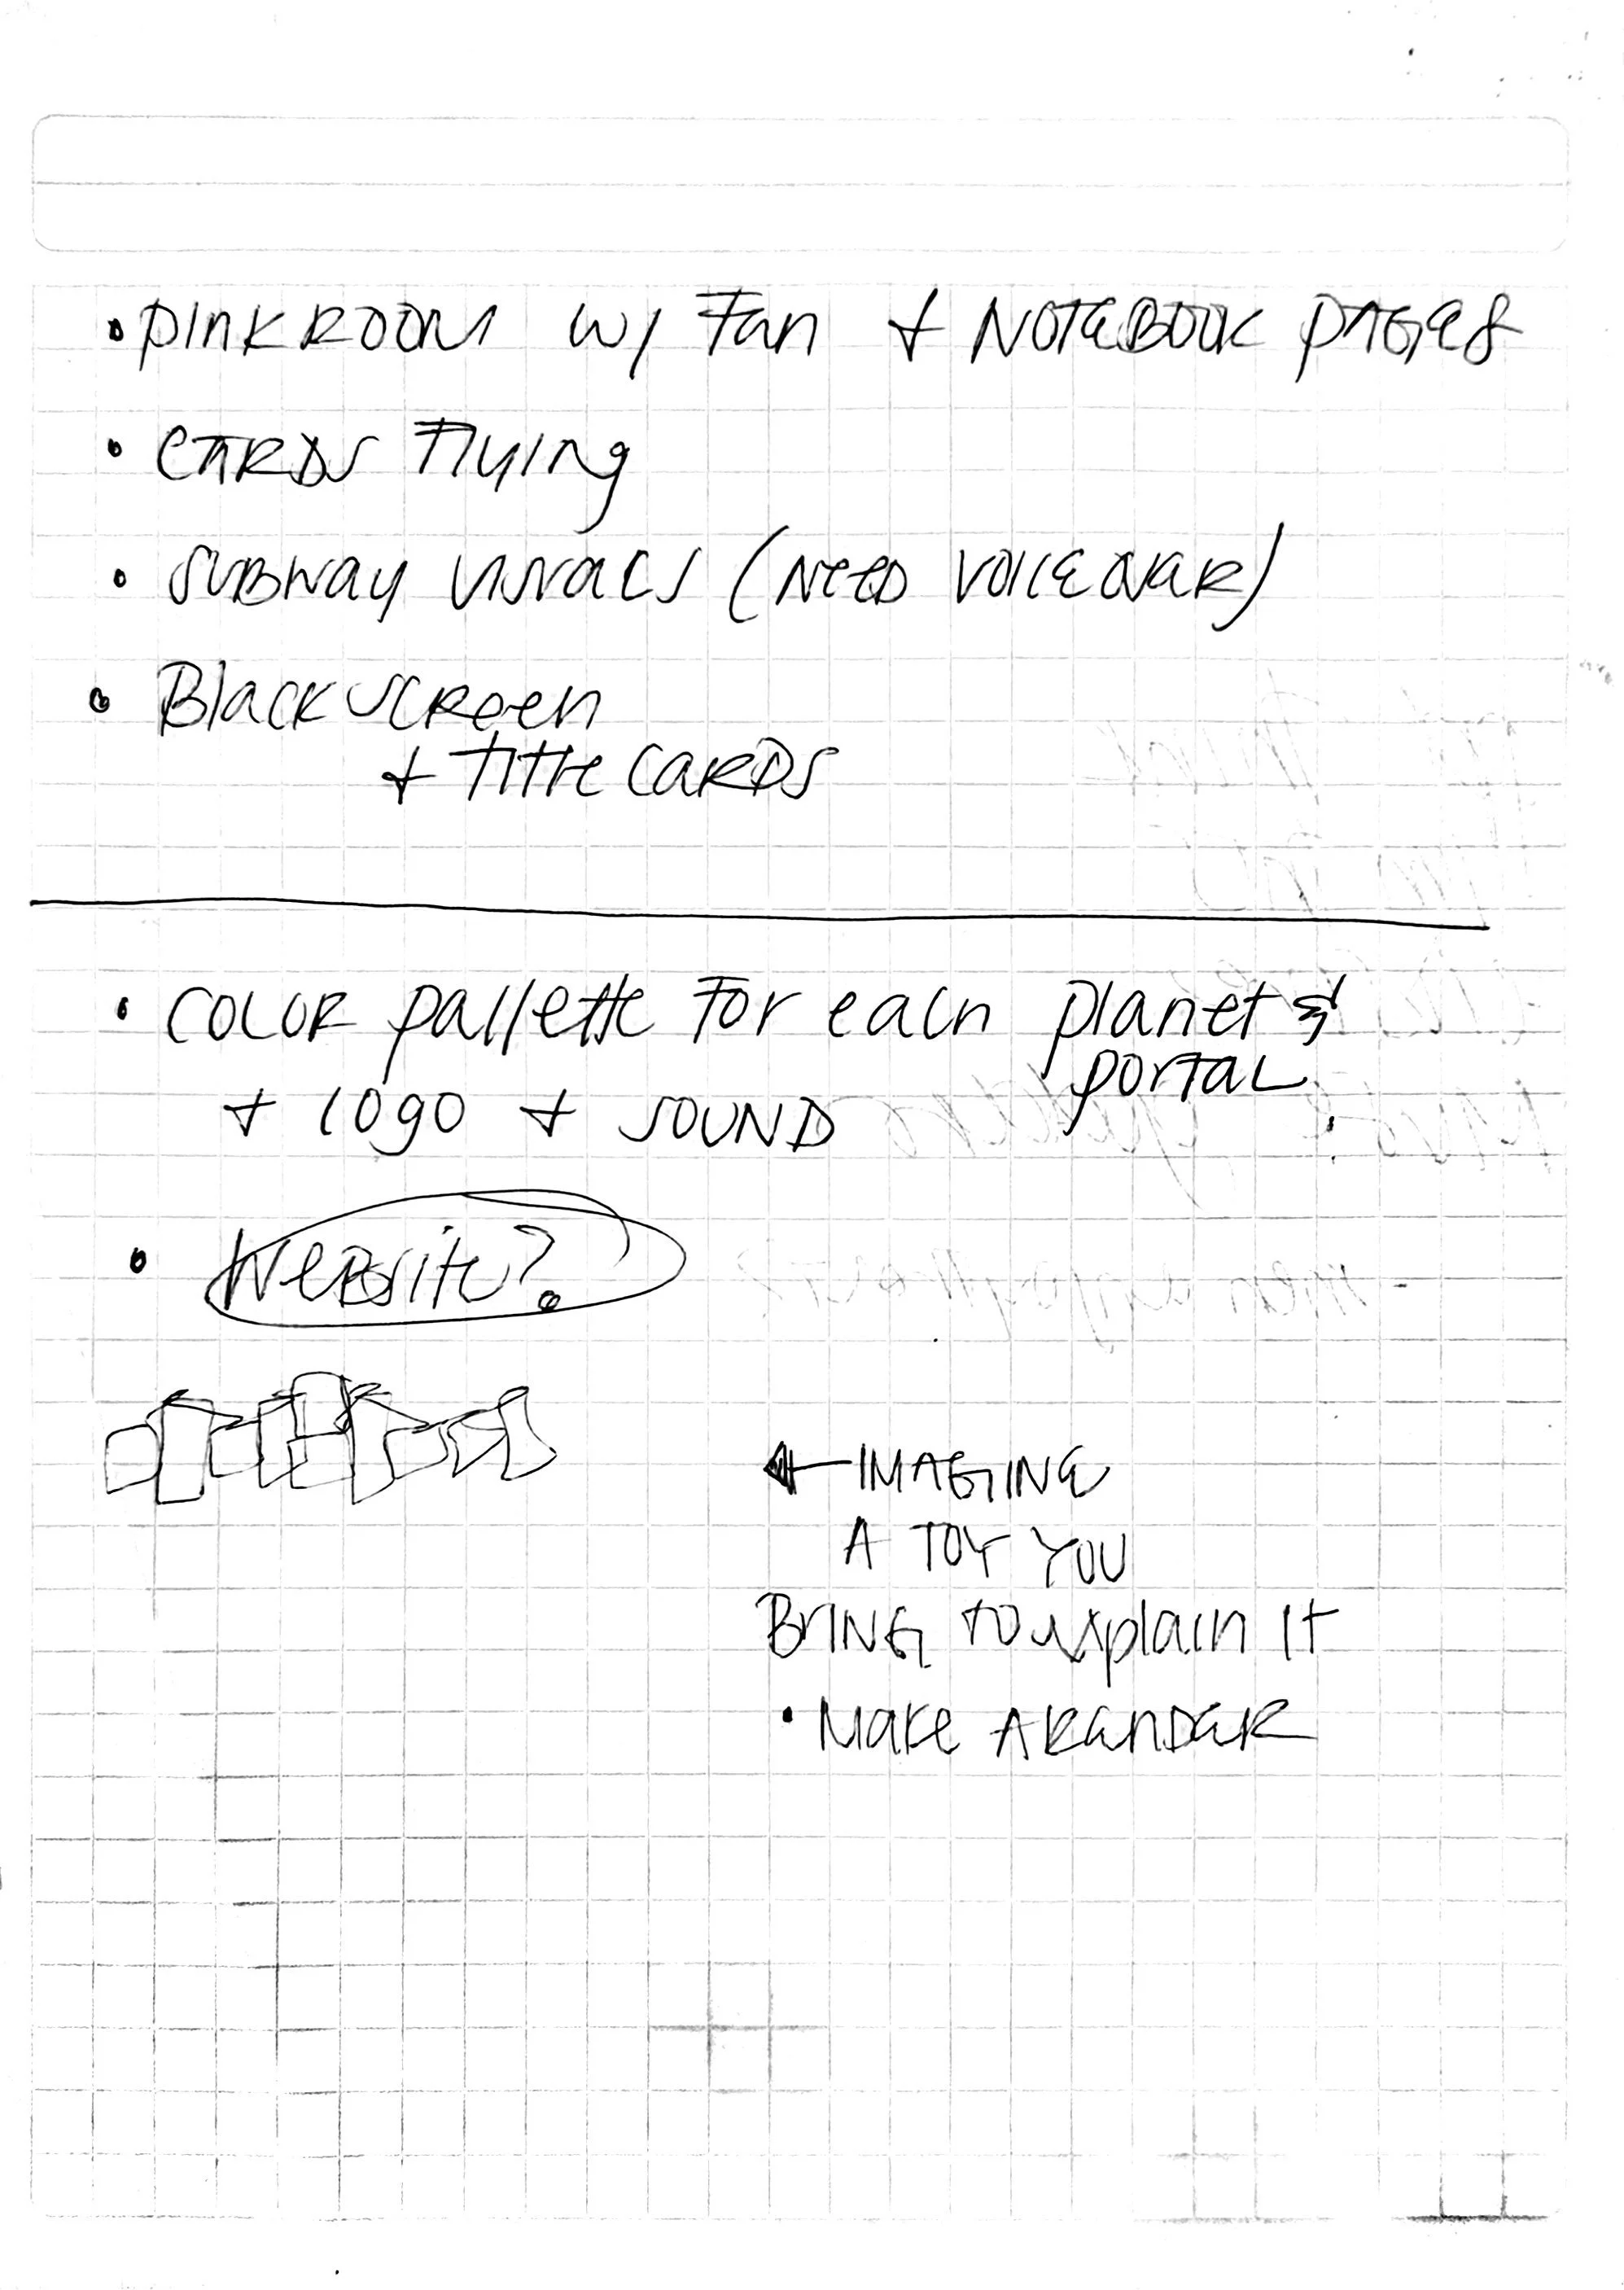 • PINK ROOM w/ Fan + NOTEBOOK PAGES
• CARDS Flying
• SUBWAY VISUALS (NEED VOICEOVER)
• Black SCREEN
+ TITLE CARDS
• COLOR pallette For each planet &
portal
+ logo + SOUND
• Website?
← IMAGINE
A TOY YOU
BRING to explain It
• Make A RENDER